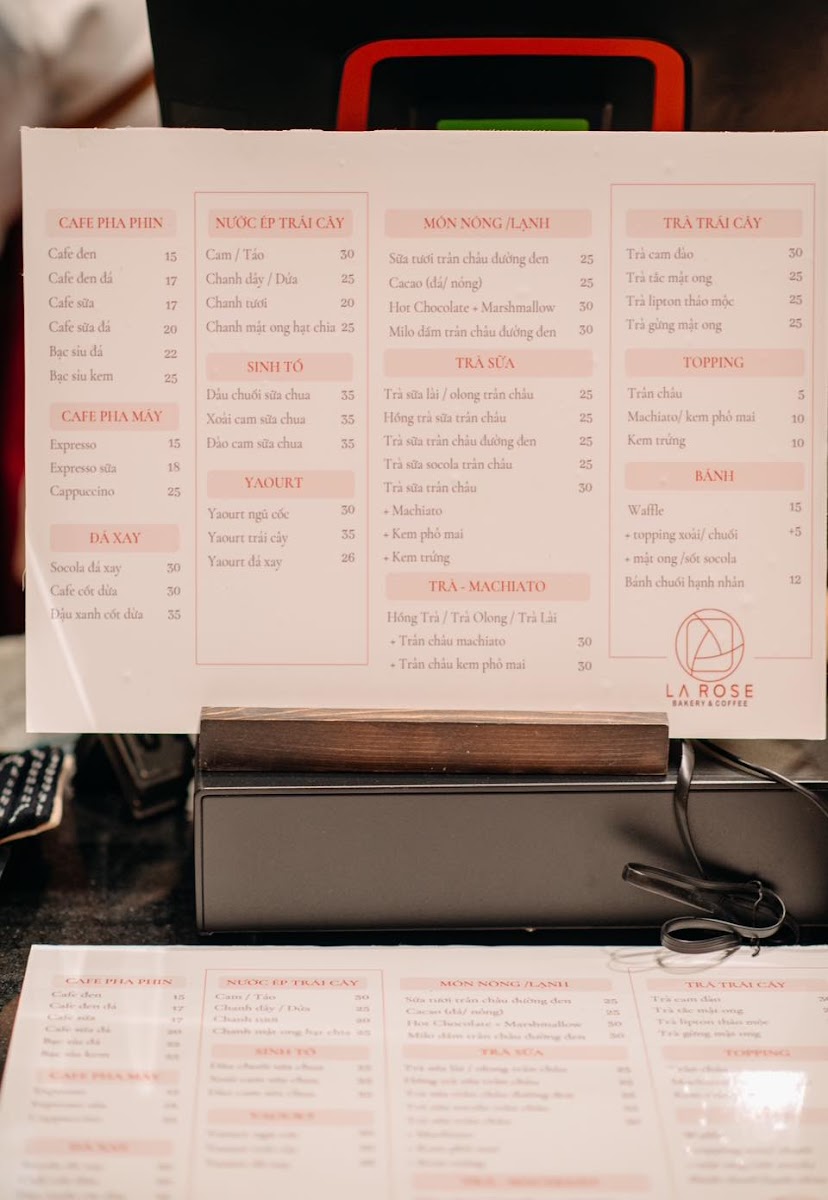 CAFE PHA PHIN
Cafe đen 15
Cafe đen đá 17
Cafe sữa 17
Cafe sữa đá 20
Bạc sỉu đá 22
Bạc sỉu kem 25
CAFE PHA MÁY
Expresso 15
Expresso sữa 18
Cappuccino 25
ĐÁ XAY
Socola đá xay 30
Cafe cốt dừa 30
Đậu xanh cốt dừa 35
NƯỚC ÉP TRÁI CÂY
Cam / Táo 30
Chanh dây / Dứa 25
Chanh tươi 20
Chanh mật ong hạt chia 25
SINH TỐ
Dâu chuối sữa chua 35
Xoài cam sữa chua 35
Đào cam sữa chua 35
YAOURT
Yaourt ngũ cốc 30
Yaourt trái cây 35
Yaourt đá xay 26
MÓN NÓNG /LẠNH
Sữa tươi trân châu đường đen 25
Cacao (đá/ nóng) 25
Hot Chocolate + Marshmallow 30
Milo dầm trân châu đường đen 30
TRÀ SỮA
Trà sữa lài / olong trân châu 25
Hồng trà sữa trân châu 25
Trà sữa trân châu đường đen 25
Trà sữa socola trân châu 25
Trà sữa trân châu 30
+ Machiato
+ Kem phô mai
+ Kem trứng
TRÀ - MACHIATO
Hồng Trà / Trà Olong / Trà Lài
+ Trân châu machiato 30
+ Trân châu kem phô mai 30
TRÀ TRÁI CÂY
Trà cam đào 30
Trà tắc mật ong 25
Trà lipton thảo mộc 25
Trà gừng mật ong 25
TOPPING
Trân châu 5
Machiato/ kem phô mai 10
Kem trứng 10
BÁNH
Waffle 15
+ topping xoài/ chuối +5
+ mật ong /sốt socola
Bánh chuối hạnh nhân 12
LA ROSE
BAKERY & COFFEE
CAFE PHA PHIN
Cafe đen 15
Cafe đen đá 17
Cafe sữa 17
Cafe sữa đá 20
Bạc sỉu đá 22
Bạc sỉu kem
CAFE PHA MÁY
NƯỚC ÉP TRÁI CÂY
Cam / Táo 30
Chanh dây / Dứa 25
Chanh tươi 20
Chanh mật ong hạt chia 25
SINH TỐ
MÓN NÓNG /LẠNH
Sữa tươi trân châu đường đen 25
Cacao (đá/ nóng) 25
Hot Chocolate + Marshmallow 30
Milo dầm trân châu đường đen 30
TRÀ SỮA
TRÀ TRÁI CÂY
Trà cam đào
Trà tắc mật ong
Trà lipton thảo mộc
Trà gừng mật ong
TOPPING